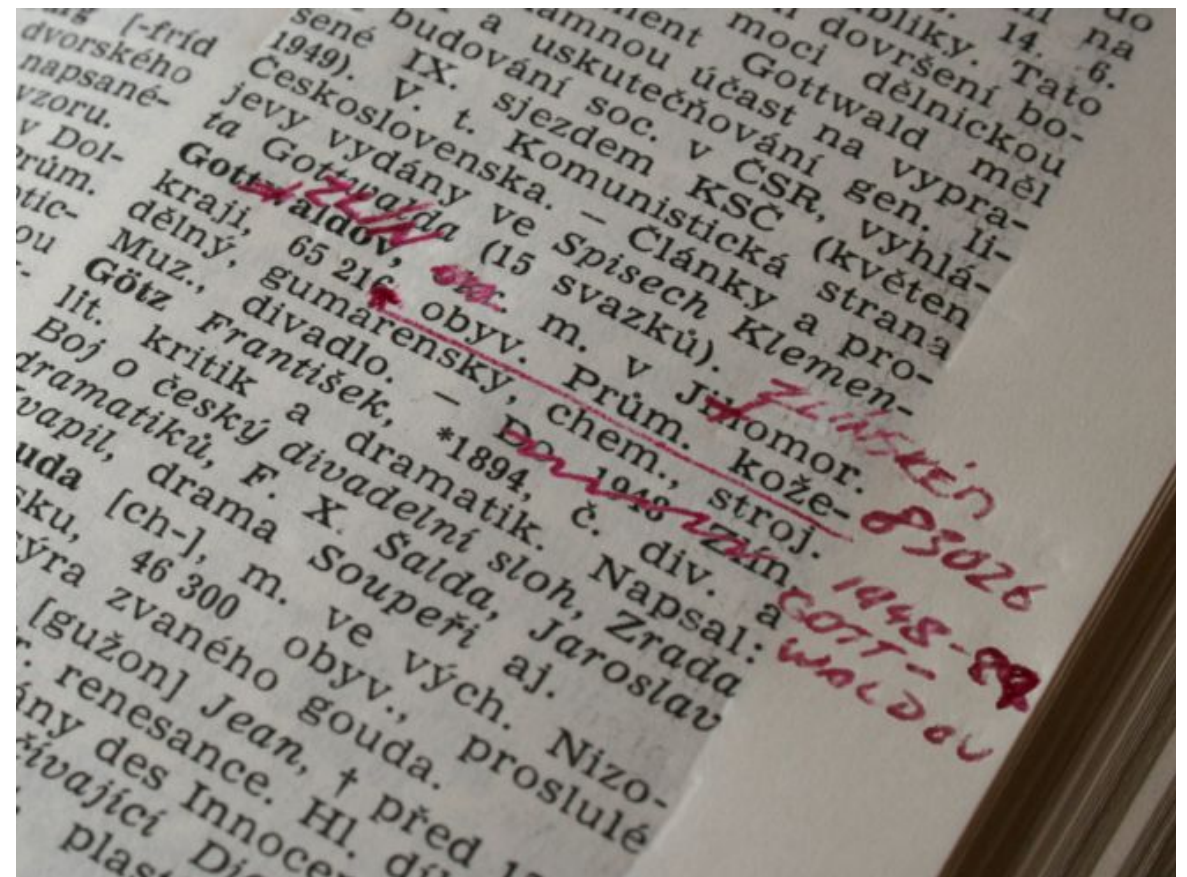 [-fríd
dvorského
napsané-
vzoru.
v Dol-
do
na
14. 6.
publiky. Tato
dovršení bo-
moci dělnickou
Gottwald měl
významnou účast na vypra-
a uskutečňování gen. li-
budování soc. v ČSR, vyhlá-
šené IX. sjezdem KSČ (květen
1949). V. t. Komunistická strana
Československa. – Články a pro-
jevy vydány ve Spisech Klemen-
ta Gottwalda (15 svazků).
Gottwaldov, m. v Jihomor.
kraji, 65 216 obyv. Prům. kože-
dělný, gumárenský, chem., stroj.
Muz., divadlo. – Do 1948 Zlín
Götz František, *1894, č. div. a
lit. kritik a dramatik. Napsal:
Boj o český divadelní sloh, Zrada
dramatiků, F. X. Šalda, Jaroslav
Kvapil, drama Soupeři aj.
Gouda [ch-], m. ve vých. Nizo-
46 300 obyv., proslulé
sýra zvaného gouda.
[gužon] Jean, † před
renesance. Hl.
des Innocen
ZLÍN
ZLÍNSKÉM
83026
1948-89
GOTT-
WALDOV